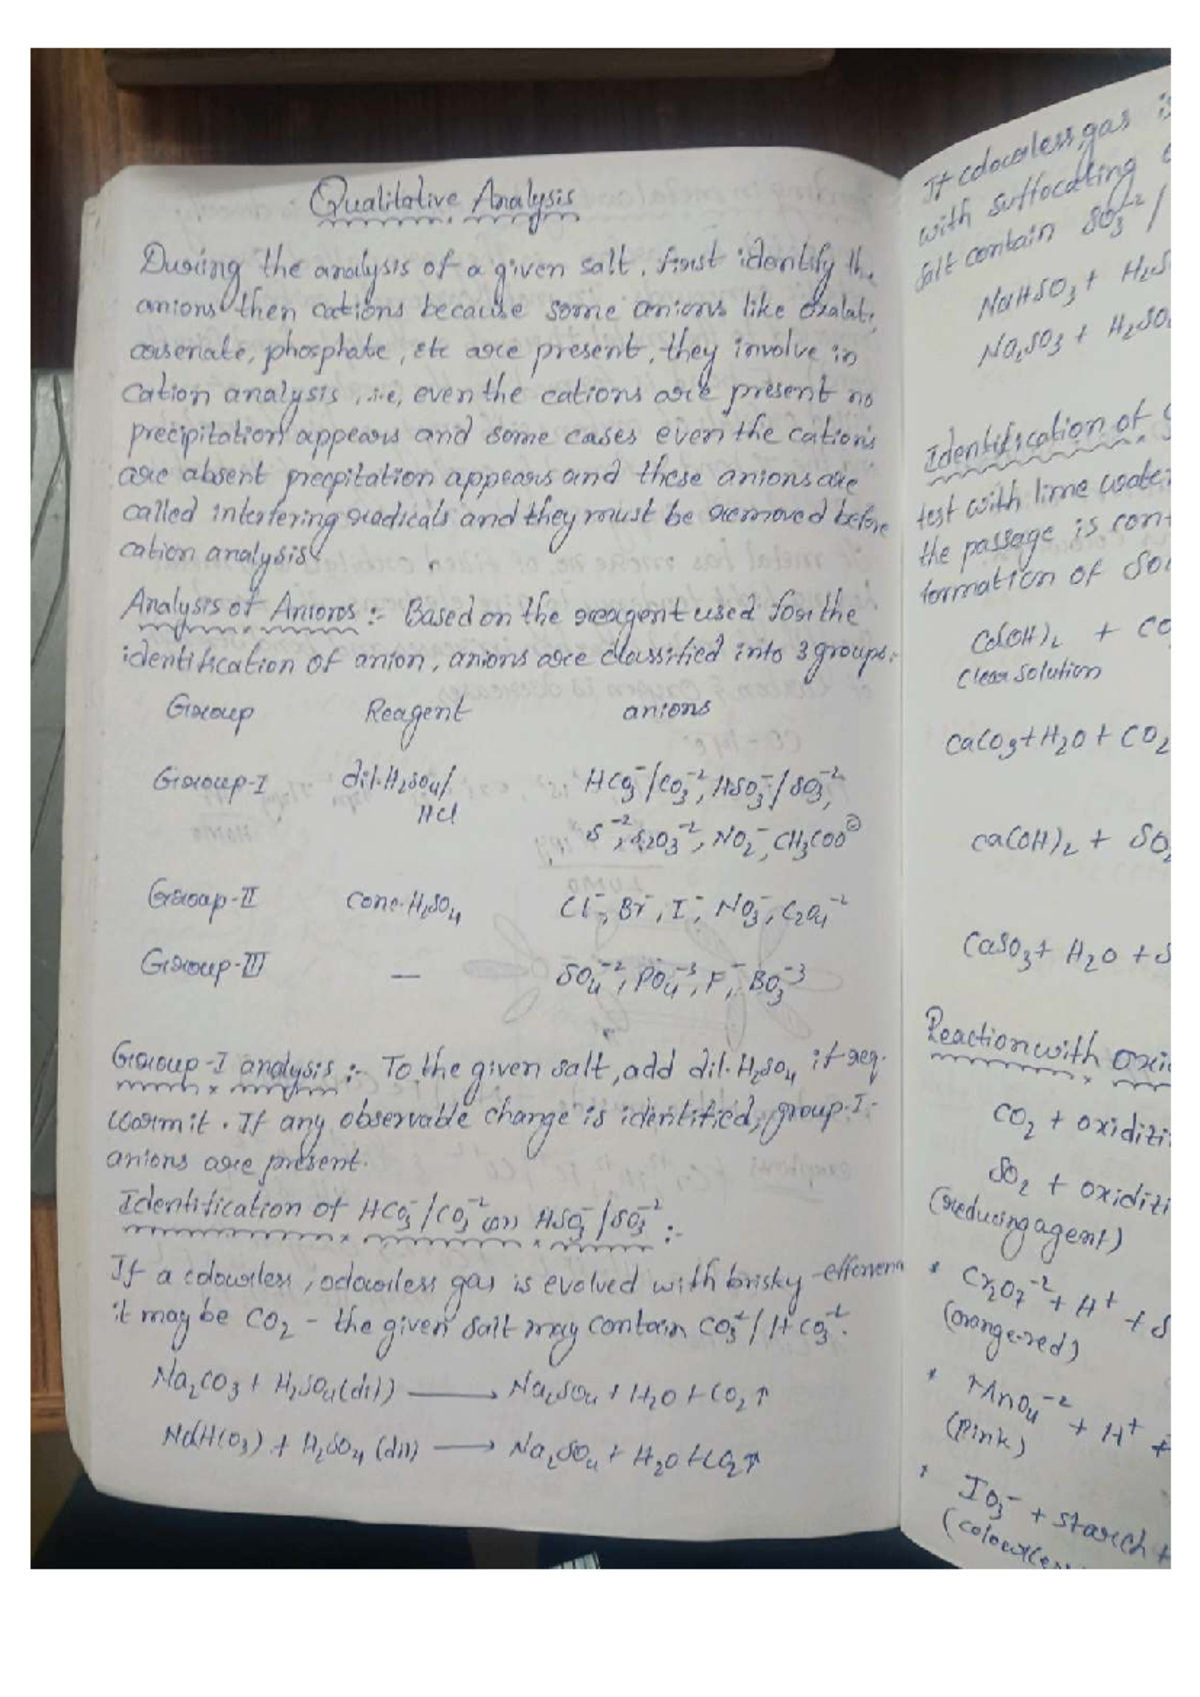 Qualitative Analysis
During the analysis of a given salt, first identify the
anions then cations because some anions like oxalate,
arsenate, phosphate, etc are present, they involve in
cation analysis, i.e, even the cations are present no
precipitation appears and some cases even the cations
are absent precpitation appears and these anions are
called interfering radicals and they must be removed before
cation analysis
Analysis of Anions :- Based on the reagent used for the
identification of anion, anions are classified into 3 groups.
Group Reagent anions
Group-I dil.H₂SO₄/ HCO₃⁻/CO₃⁻², HSO₃⁻/SO₃⁻²,
HCl S⁻², S₂O₃⁻², NO₂⁻, CH₃COO⊖
Group-II conc.H₂SO₄ Cl⁻, Br⁻, I⁻, NO₃⁻, C₂O₄⁻²
Group-III — SO₄⁻², PO₄⁻³, F⁻, BO₃⁻³
Group-I analysis :- To the given salt, add dil.H₂SO₄ if req.
warm it. If any observable change is identified, group-I-
anions are present.
Identification of HCO₃⁻/CO₃⁻² (or) HSO₃⁻/SO₃⁻² :-
If a colourless, odourless gas is evolved with brisky
it may be CO₂ - the given salt may contain CO₃⁻²/HCO₃⁻².
Na₂CO₃ + H₂SO₄(dil) ⟶ Na₂SO₄ + H₂O + CO₂↑
NaHCO₃) + H₂SO₄ (dil) ⟶ Na₂SO₄ + H₂O + CO₂↑
If colourless gas is
with suffocating
salt contain SO₃⁻² /
NaHSO₃ + H₂S
Na₂SO₃ + H₂SO₄
Identification of
test with lime water
the passage is con
formation of
Ca(OH)₂ + CO
Clear solution
CaCO₃ + H₂O + CO₂
Ca(OH)₂ + SO₂
CaSO₃ + H₂O + S
Reaction with oxi
CO₂ + oxidizi
SO₂ + oxidizi
(reducing agent)
* Cr₂O₇⁻² + H⁺ + S
(orange-red)
* MnO₄⁻² + H⁺ +
(Pink)
* IO₃⁻ + starch +
(colourless